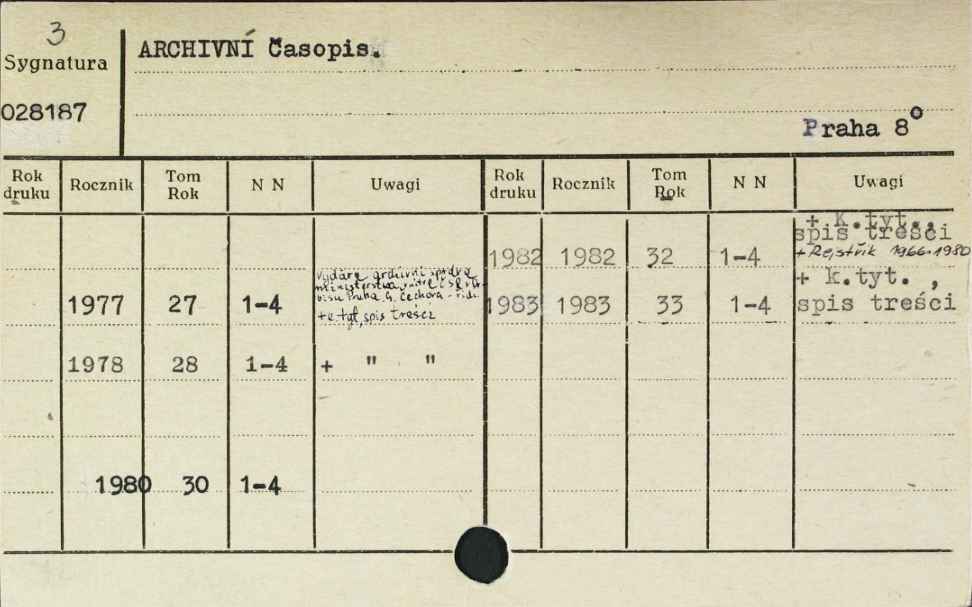 3
Sygnatura
028187
ARCHIVNÍ Časopis.
Praha 8°
Rok druku Rocznik Tom Rok N N Uwagi Rok druku Rocznik Tom Rok N N Uwagi
1982 1982 32 1-4 + k.tyt., spis treści
+ Rejstřik 1966-1980
1977 27 1-4
archivní
Praha
+ tyt, spis treści
1983 1983 33 1-4 + k.tyt., spis treści
1978 28 1-4 + " "
1980 30 1-4